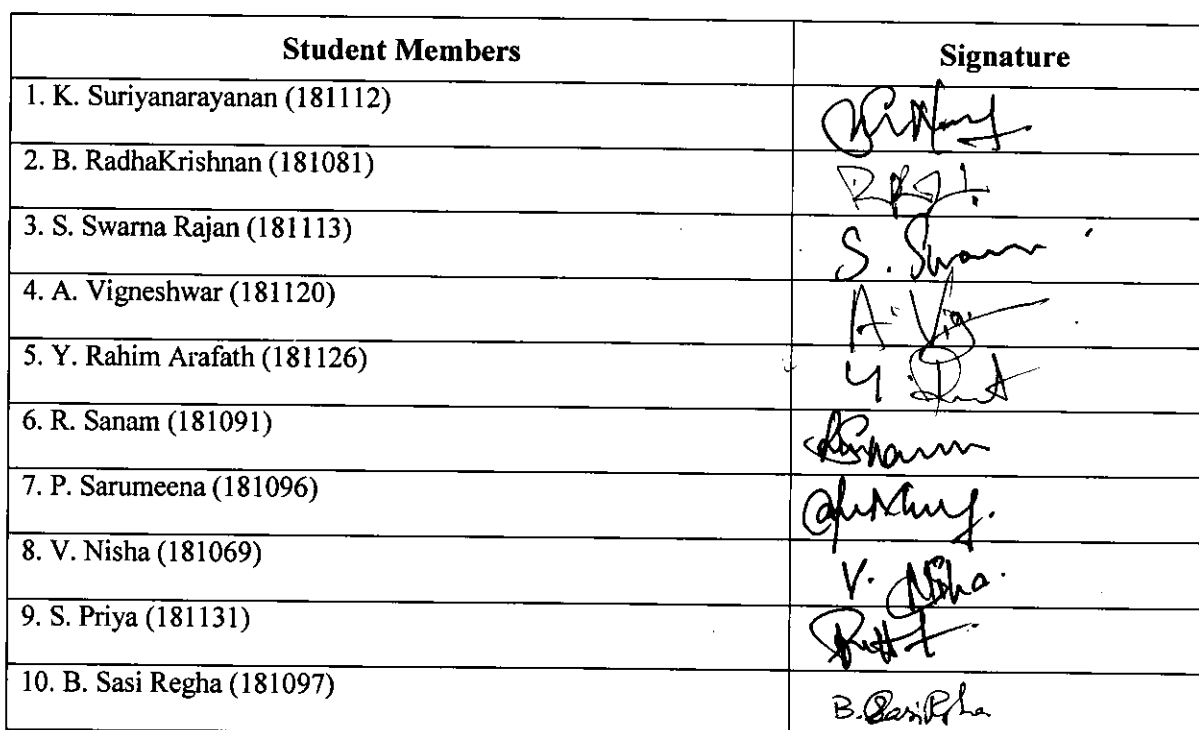 Student Members Signature
1. K. Suriyanarayanan (181112)
2. B. RadhaKrishnan (181081)
3. S. Swarna Rajan (181113)
S. Swarn
4. A. Vigneshwar (181120)
A. Vig
5. Y. Rahim Arafath (181126)
6. R. Sanam (181091)
7. P. Sarumeena (181096)
8. V. Nisha (181069)
V. Nisha.
9. S. Priya (181131)
10. B. Sasi Regha (181097)
B. Sasi Regha